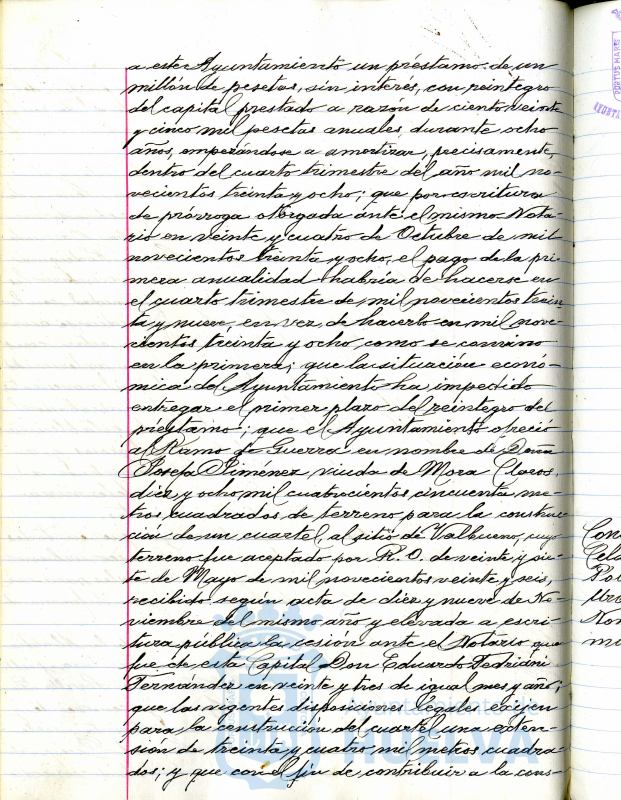 a este Ayuntamiento un préstamo de un
millón de pesetas, sin interés, con reintegro
del capital prestado a razón de ciento veinte
y cinco mil pesetas anuales, durante ocho
años, empezándose a amortizar, precisamente,
dentro del cuarto trimestre del año mil no-
vecientos treinta y ocho; que por escritura
de prórroga otorgada ante el mismo Nota-
rio en veinte y cuatro de Octubre de mil
novecientos treinta y ocho, el pago de la pri-
mera anualidad habría de hacerse en
el cuarto trimestre de mil novecientos trein-
ta y nueve, en vez de hacerlo en mil nove-
cientos treinta y ocho, como se convino
en la primera; que la situación econó-
mica del Ayuntamiento ha impedido
entregar el primer plazo del reintegro del
préstamo; que el Ayuntamiento ofreció
al Ramo de Guerra en nombre de Doña
Josefa Jiménez, viuda de Mora Claros,
diez y ocho mil cuatrocientos cincuenta me-
tros cuadrados de terreno para la construc-
ción de un cuartel, al sitio de Valbueno, cuyo
terreno fue aceptado por R. O. de veinte y sie-
te de Mayo de mil novecientos veinte y seis,
recibido según acta de diez y nueve de No-
viembre del mismo año y elevada a escri-
tura pública la cesión ante el Notario que
fue de esta Capital Don Eduardo Fedriani
Fernández en veinte y tres de igual mes y año;
que las vigentes disposiciones legales exijen
para la construcción del cuartel una exten-
sión de treinta y cuatro mil metros cuadra-
dos; y que con el fin de contribuir a la cons-
Ayuntamiento de
HUELVA
PORTUS MARIS